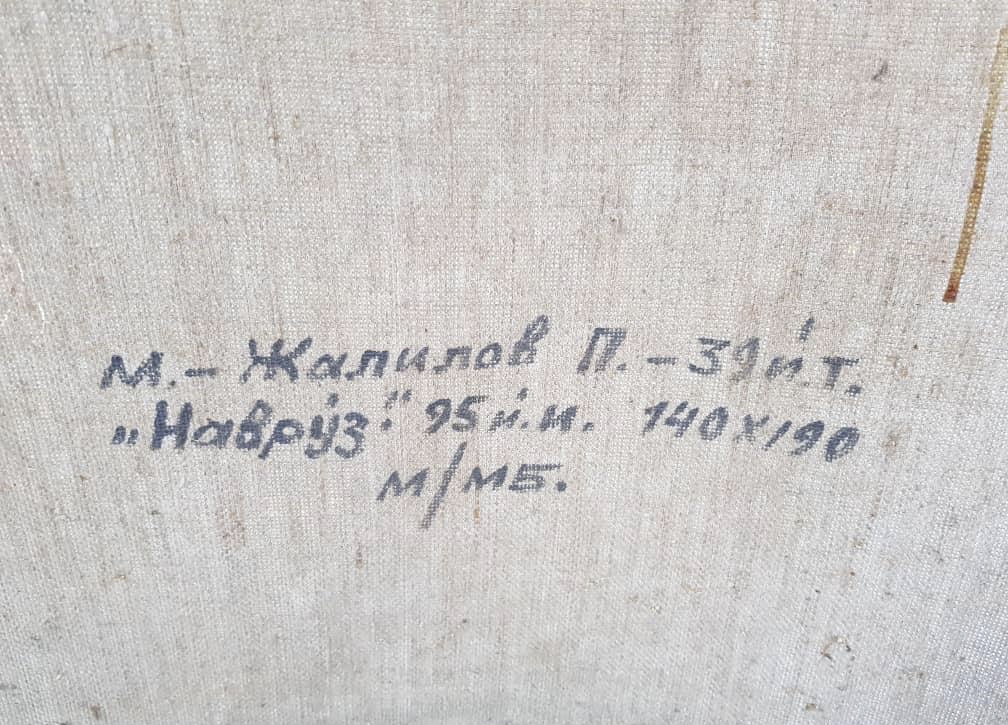 М.- Жалилов П. - 39 й.т.
"Наврўз". 95 й.и. 140х190
м/мб.